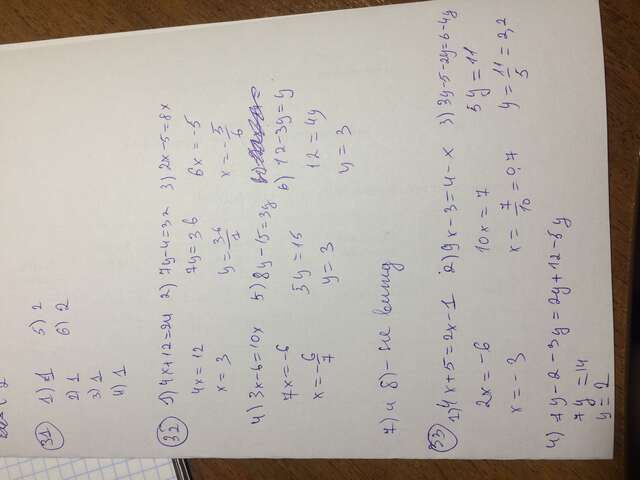 31
1) 1
2) 1
3) 1
4) 1
5) 2
6) 2
32
1) 4x+12=24
4x=12
x=3
2) 7y-4=32
7y=36
y=36/7
3) 2x-5=8x
6x=-5
x=-5/6
4) 3x-6=10x
7x=-6
x=-6/7
5) 8y-15=3y
5y=15
y=3
6) 12-3y=y
12=4y
y=3
7) и 8) - не вижу
33
1) 4x+5=2x-1
2x=-6
x=-3
2) 9x-3=4-x
10x=7
x=7/10=0,7
3) 3y-5-2y=6-4y
5y=11
y=11/5=2,2
4) 4y-2-3y=2y+12-6y
7y=14
y=2